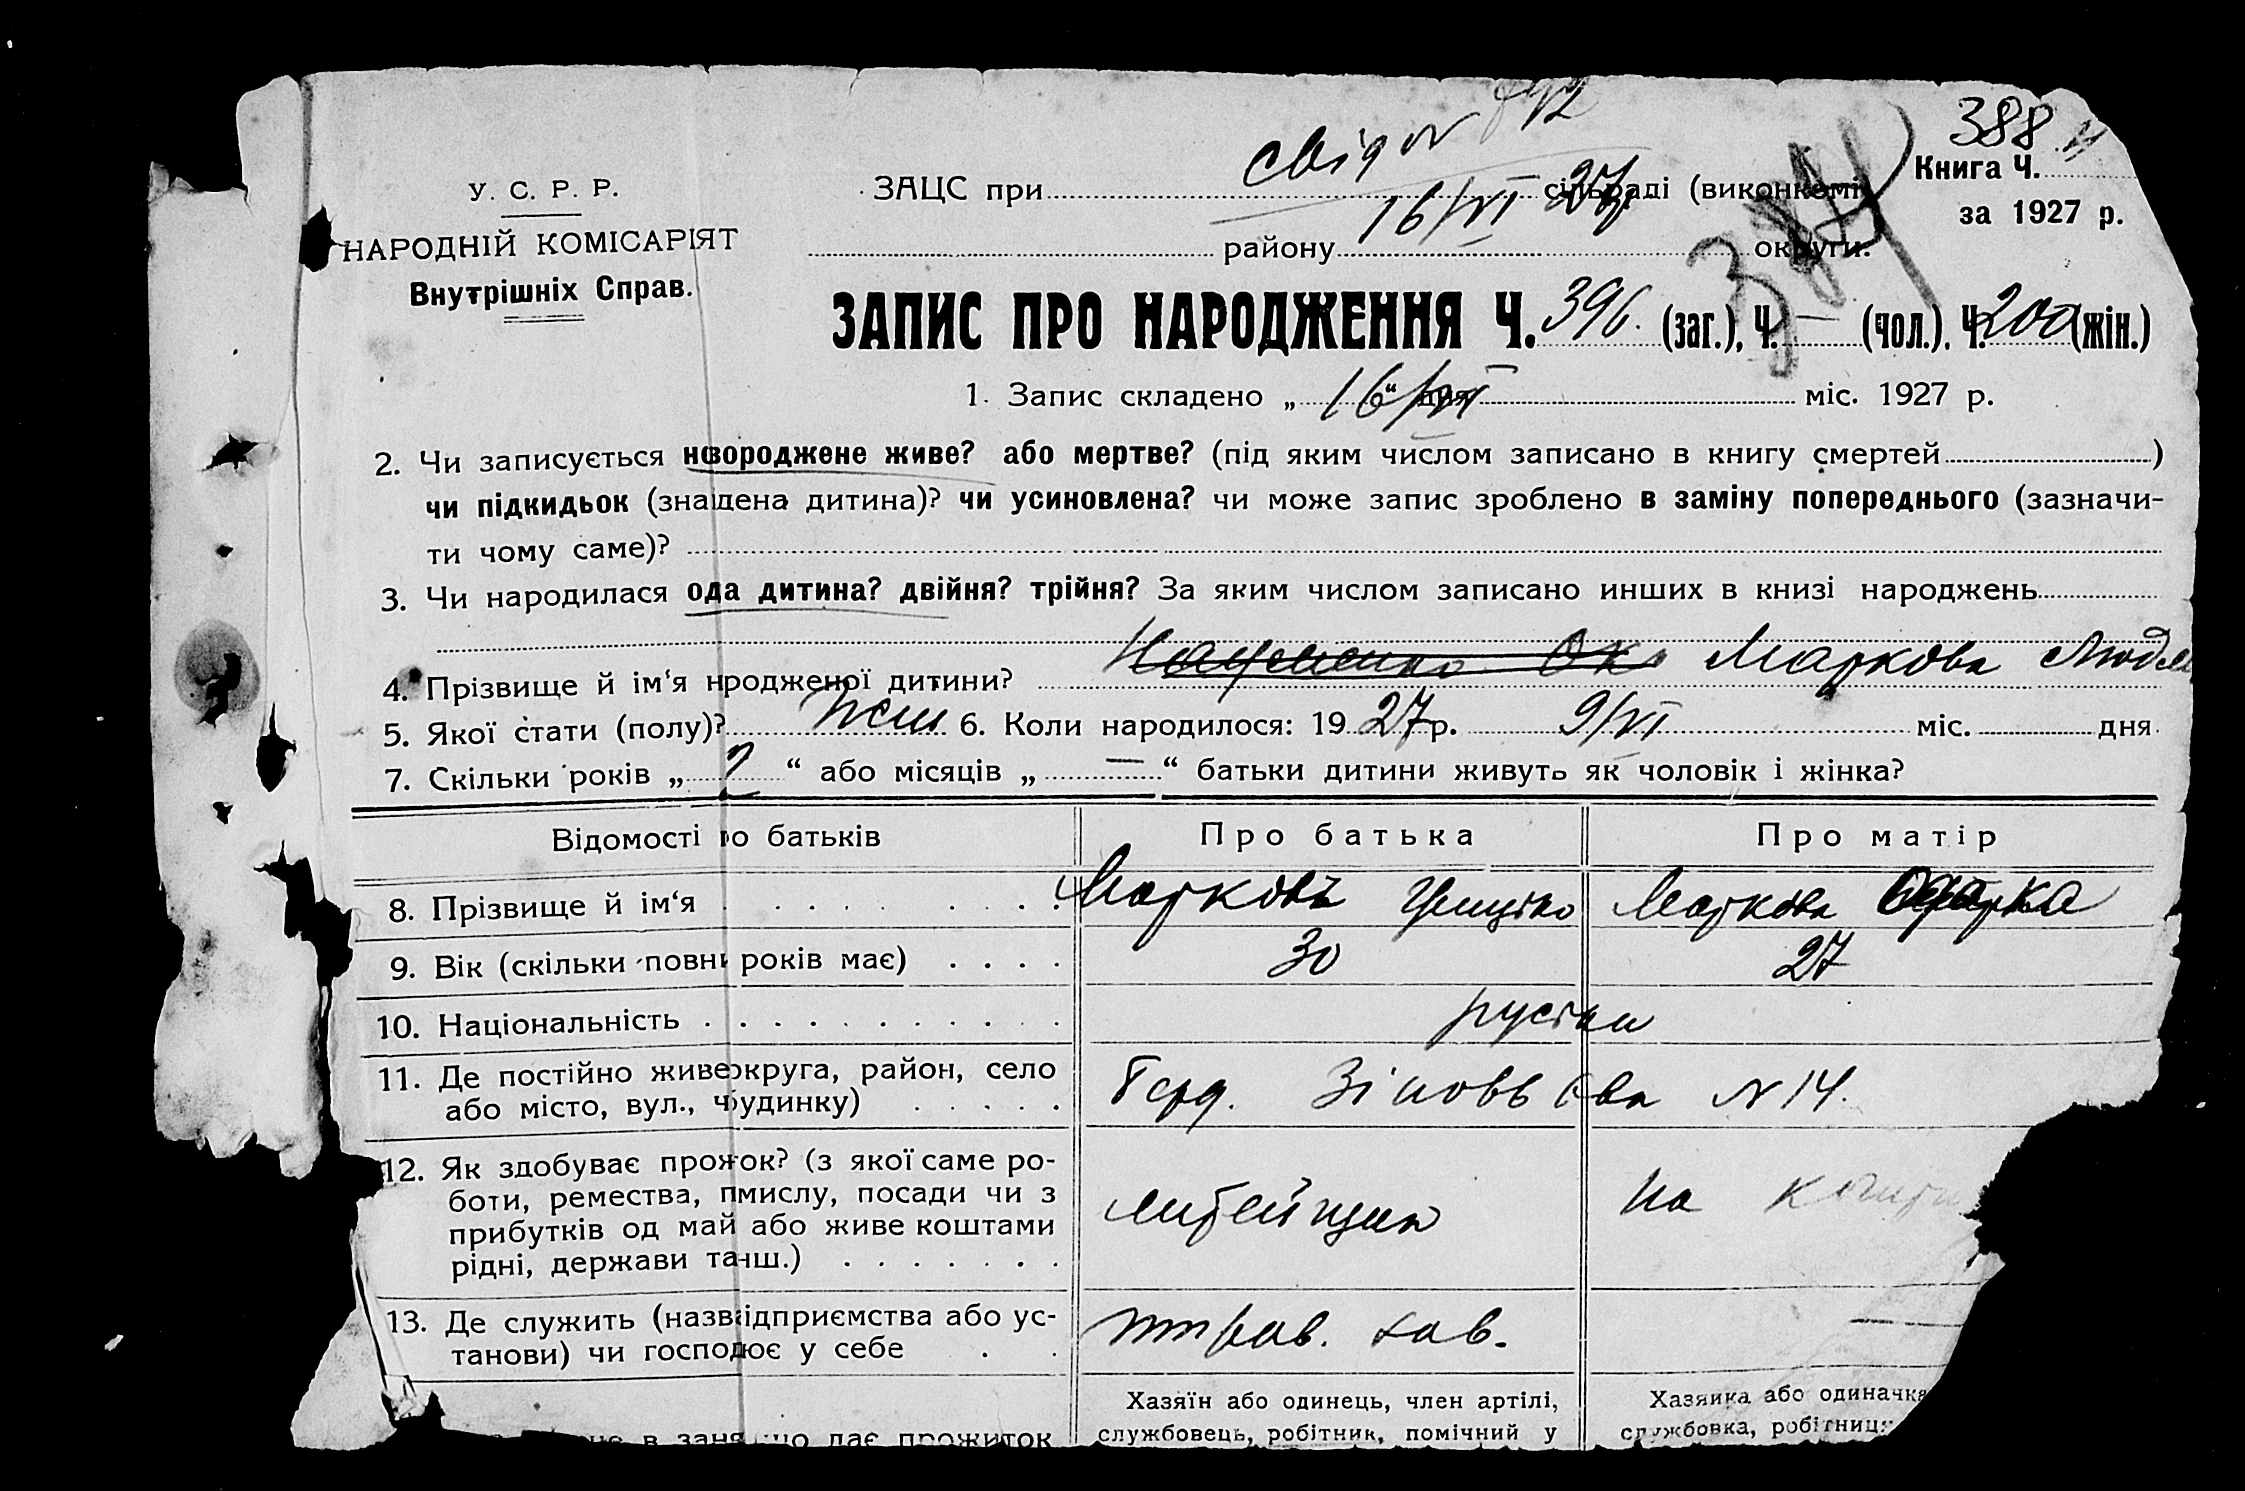 388
Книга Ч.
за 1927 р.
У. С. Р. Р.
НАРОДНІЙ КОМІСАРІЯТ
Внутрішніх Справ.
свід N
ЗАЦС при сільраді (виконкомі
16/VI 27р.
району округи.
ЗАПИС ПРО НАРОДЖЕННЯ Ч. 396. (заг.), Ч. — (чол.). Ч. 200 (жін.)
1. Запис складено „ 16/VI “ дня міс. 1927 р.
2. Чи записується новороджене живе? або мертве? (під яким числом записано в книгу смертей )
чи підкидьок (знайдена дитина)? чи усиновлена? чи може запис зроблено в заміну попереднього (зазначи-
ти чому саме)?
3. Чи народилася ода дитина? двійня? трійня? За яким числом записано инших в книзі народжень
4. Прізвище й ім‘я нродженої дитини? Маркова Людм
5. Якої стати (полу)? жін 6. Коли народилося: 19 27 р. 9/VI міс. дня
7. Скільки років „ 2 “ або місяців „ — “ батьки дитини живуть як чоловік і жінка?
Відомості о батьків Про батька Про матір
8. Прізвище й ім‘я Марковъ Маркова Одарка
9. Вік (скільки повни років має) 30 27
10. Національність руські
11. Де постійно живе округа, район, село
або місто, вул., ч будинку) N 14.
12. Як здобуває прожток? (з якої саме ро-
боти, ремества, пмислу, посади чи з
прибутків од май або живе коштами
рідні, держави та нш.)
литейщик на
13. Де служить (назв відприємства або ус-
танови) чи господює у себе
зав. —
Хазяїн або одинець, член артілі,
службовець, робітник, помічний у
Хазяйка або одиначка
службовка, робітниця
в заня що дає прожиток